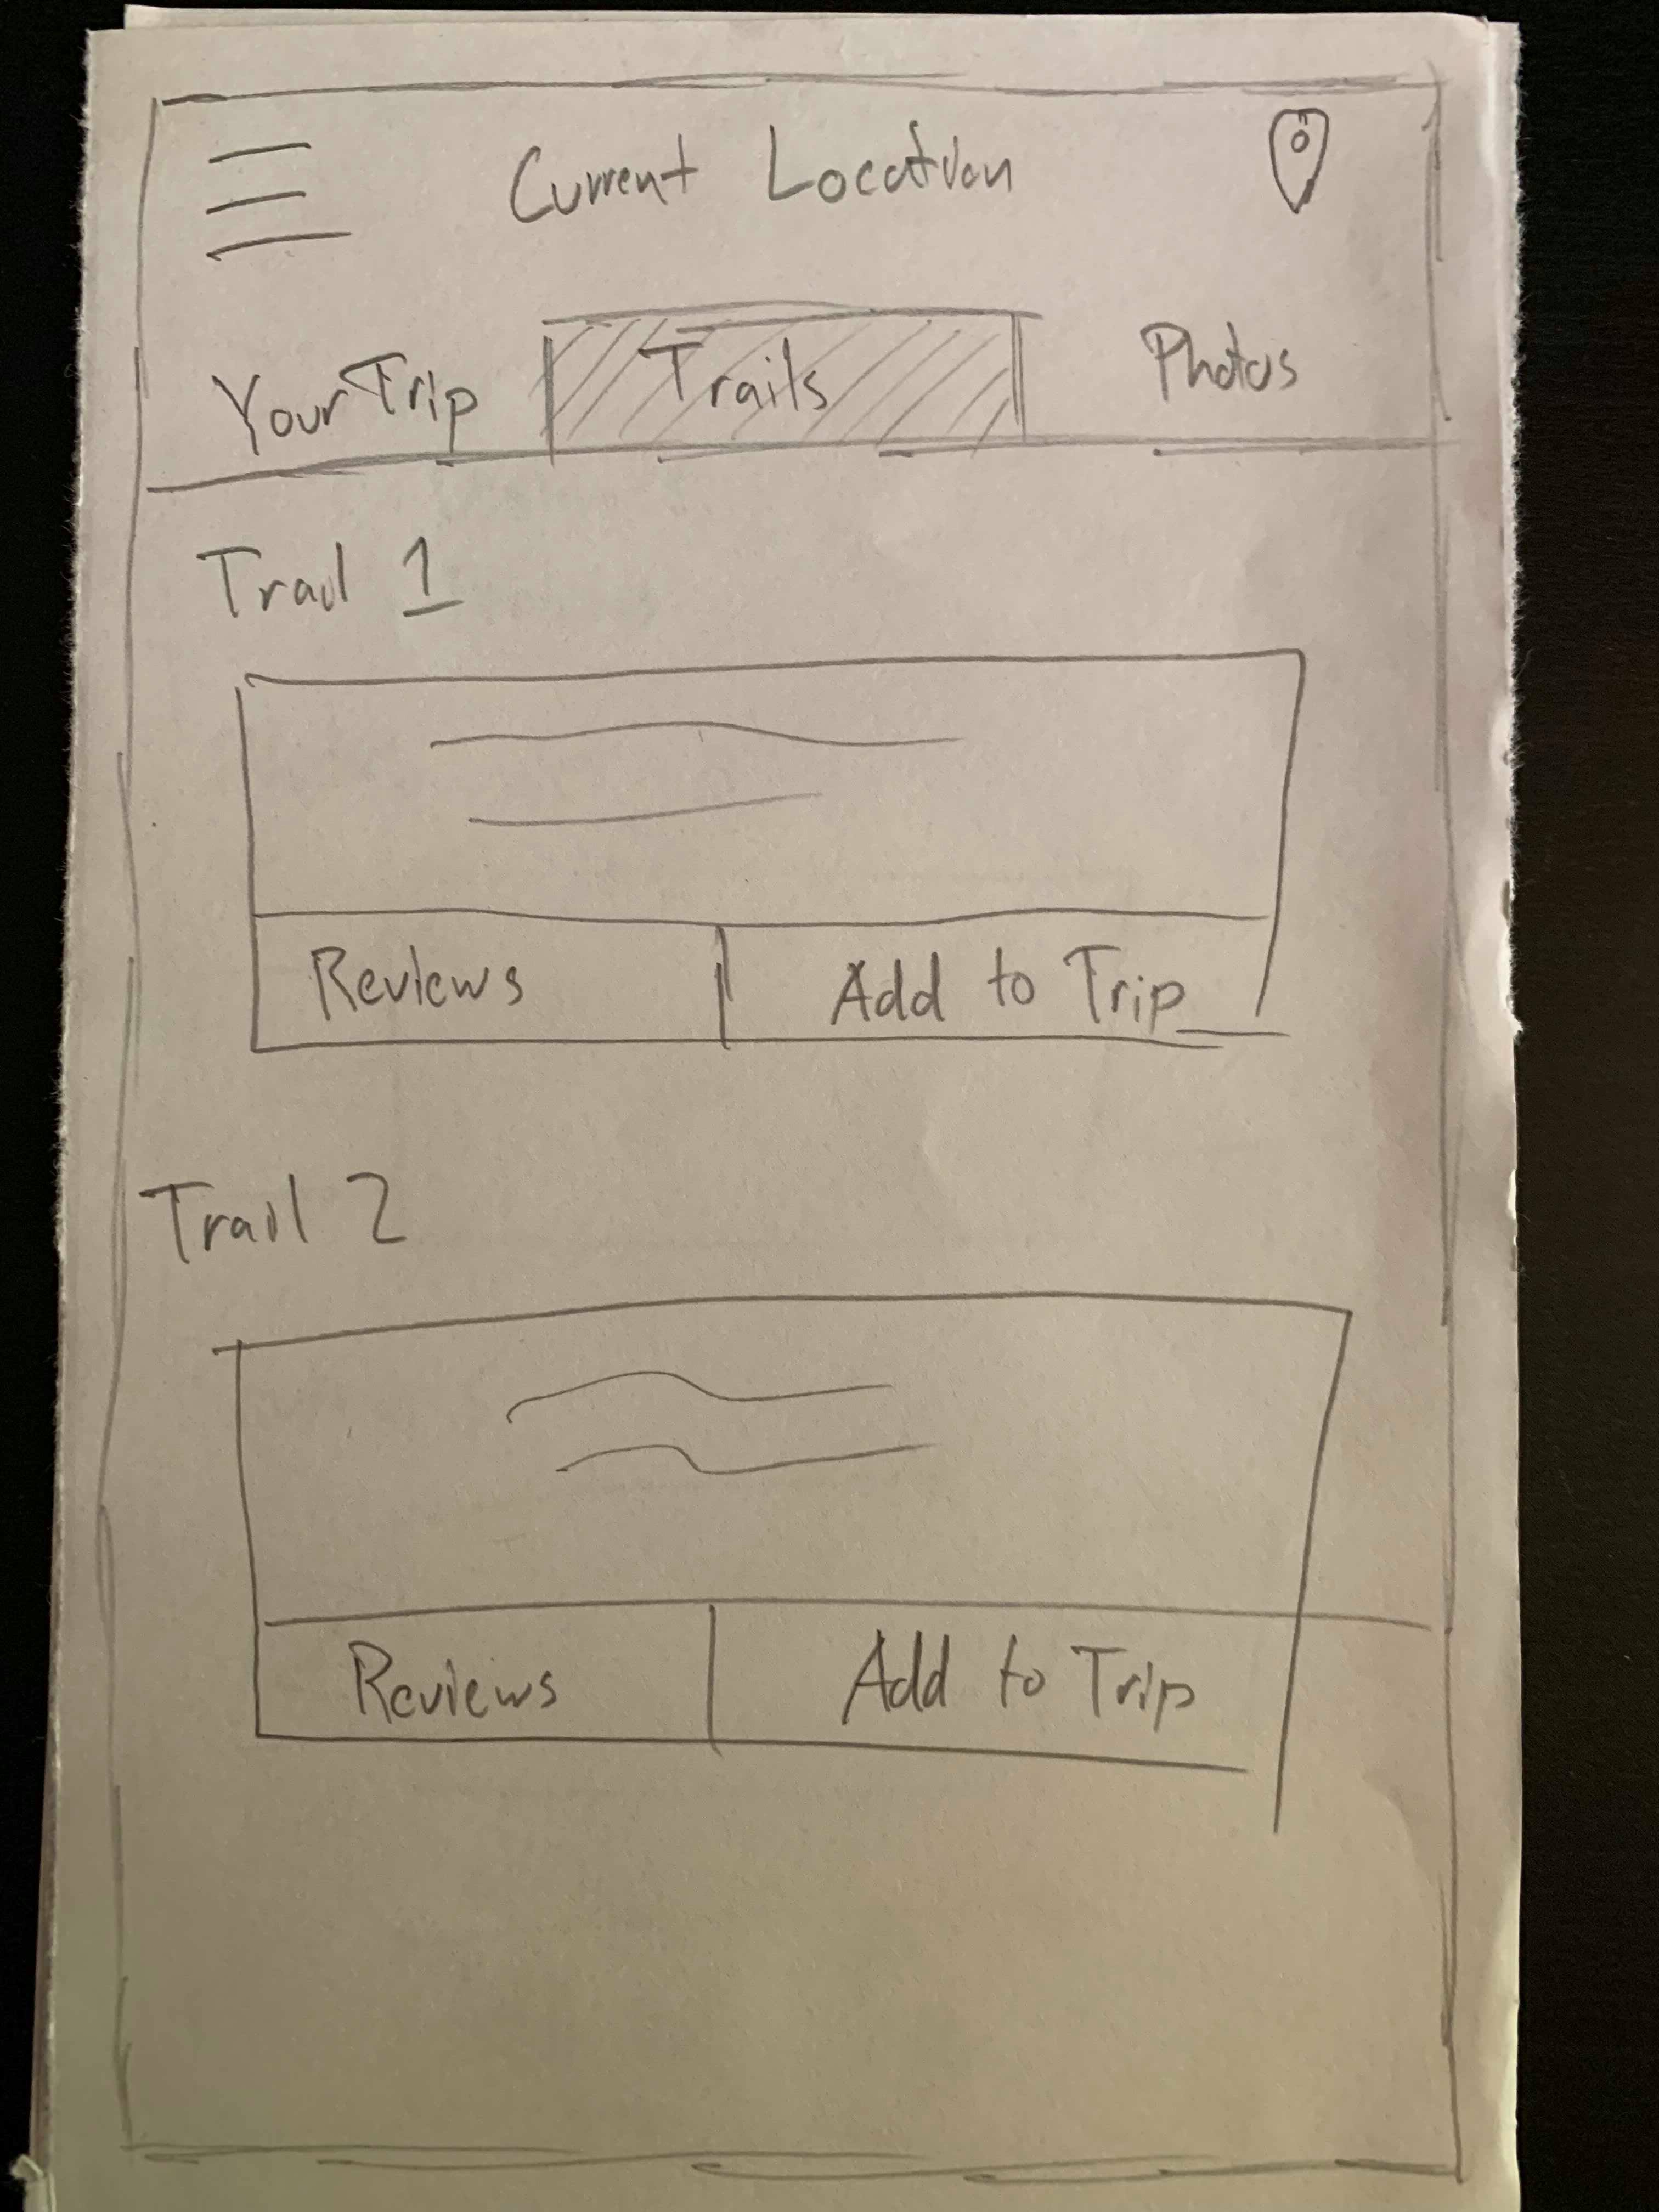 Current Location
Your Trip Trails Photos
Trail 1
Reviews Add to Trip
Trail 2
Reviews Add to Trip